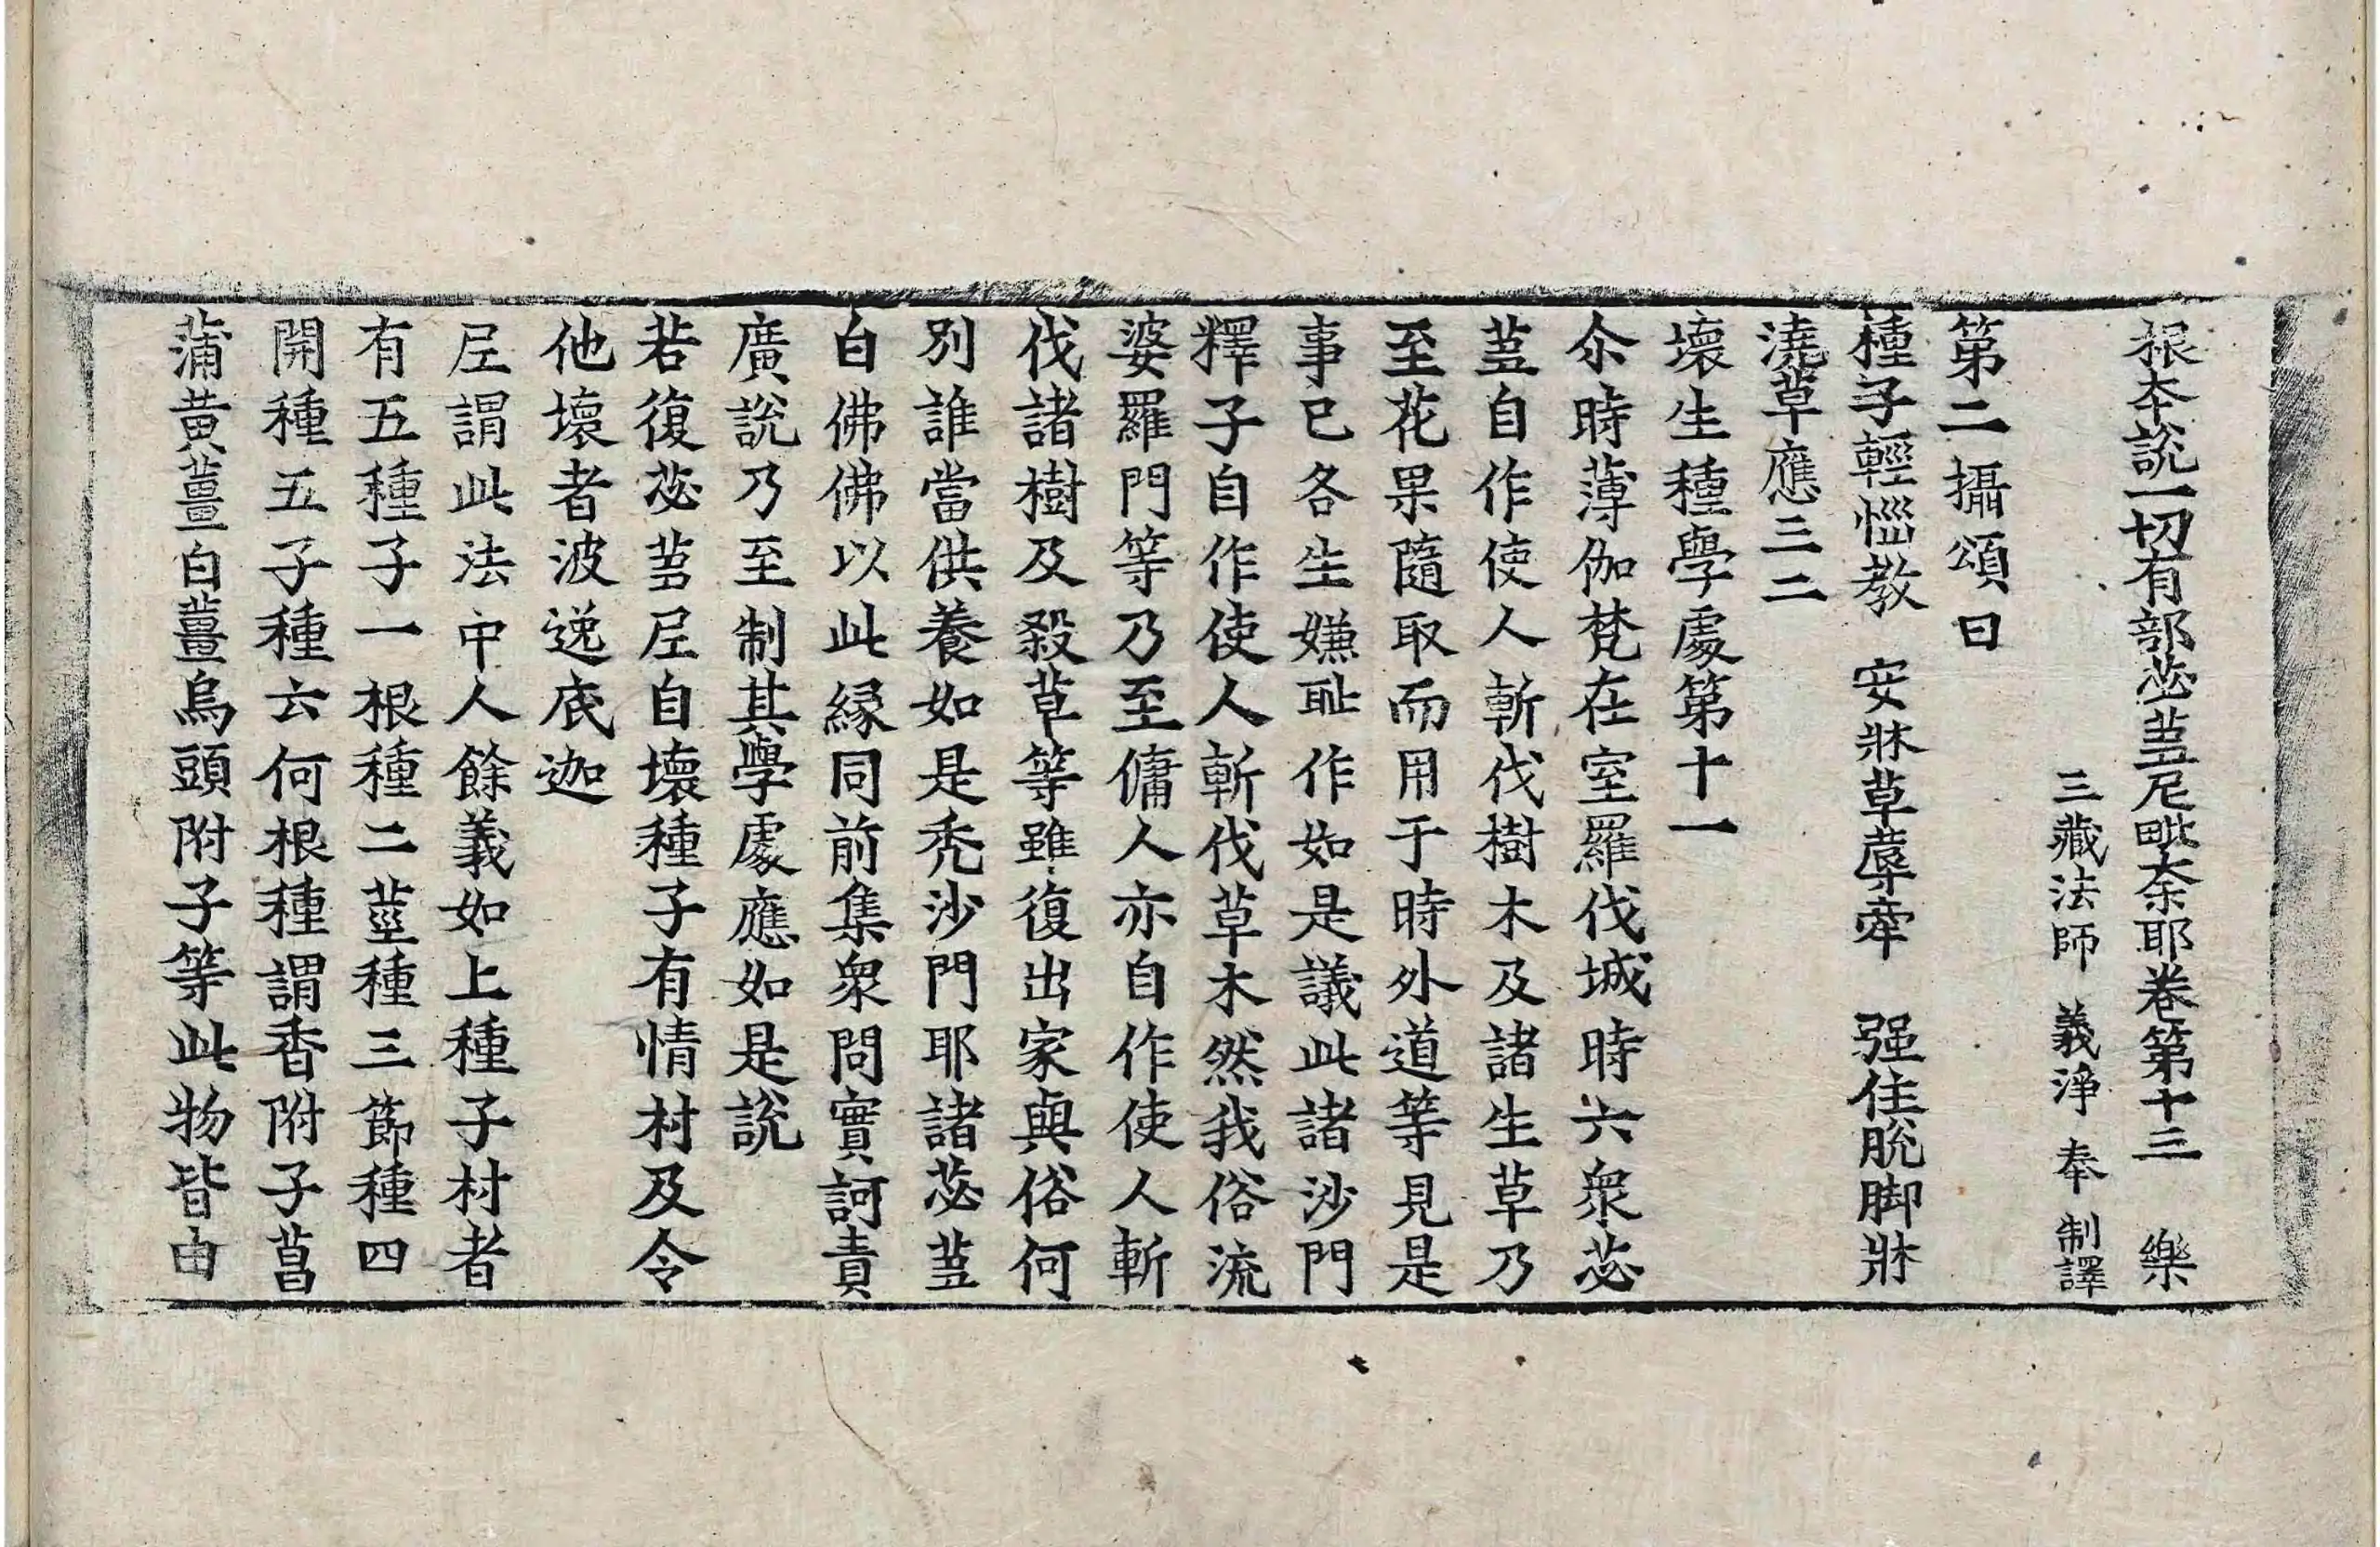 根本說一切有部苾蒭尼毗奈耶卷第十三　樂
三藏法師　義淨　奉　制譯
第二攝頌曰
種子輕惱教　安牀草蓐牽　强住脫脚牀
澆草應三二
壞生種學處第十一
尒時薄伽梵在室羅伐城時六衆苾
蒭自作使人斬伐樹木及諸生草乃
至花果隨取而用于時外道等見是
事已各生嫌耻作如是議此諸沙門
釋子自作使人斬伐草木然我俗流
婆羅門等乃至傭人亦自作使人斬
伐諸樹及殺草等雖復出家與俗何
別誰當供養如是禿沙門耶諸苾蒭
白佛佛以此緣同前集衆問實訶責
廣說乃至制其學處應如是說
若復苾蒭尼自壞種子有情村及令
他壞者波逸底迦
尼謂此法中人餘義如上種子村者
有五種子一根種二莖種三節種四
開種五子種云何根種謂香附子菖
蒲黃薑白薑烏頭附子等此物皆由